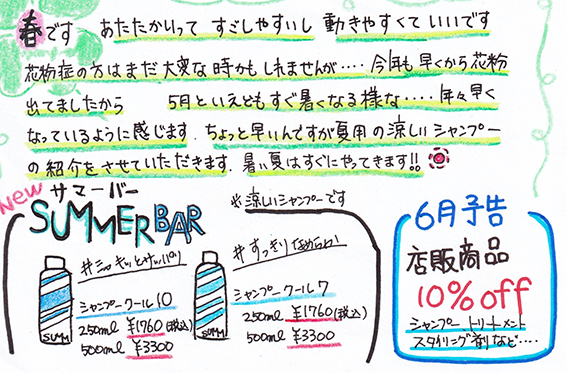 春です あたたかいって すごしやすいし 動きやすくていいです
花粉症の方はまだ大変な時かもしれませんが‥‥ 今年も早くから花粉
出てましたから 5月といえどもすぐ暑くなる様な‥‥ 年々早く
なっているように感じます. ちょっと早いんですが夏用の涼しいシャンプー
の紹介をさせていただきます. 暑い夏はすぐにやってきます!!
New サマーバー
SUMMER BAR
※涼しいシャンプーです
#シャキッとサッパリ
シャンプークール10
250ml ¥1760(税込)
500ml ¥3300
SUMM
#すっきりなめらか!
シャンプークール7
250ml ¥1760(税込)
500ml ¥3300
SUMM
6月予告
店販商品
10%off
シャンプー トリートメント
スタイリング剤など‥‥